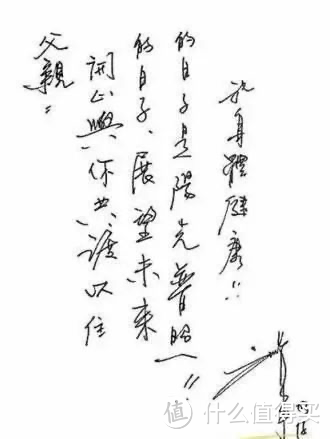 父親：
開心與你共渡以往
的日子、展望未來
的日子是陽光普照!!
祝身體健康!!
值 什么值得买